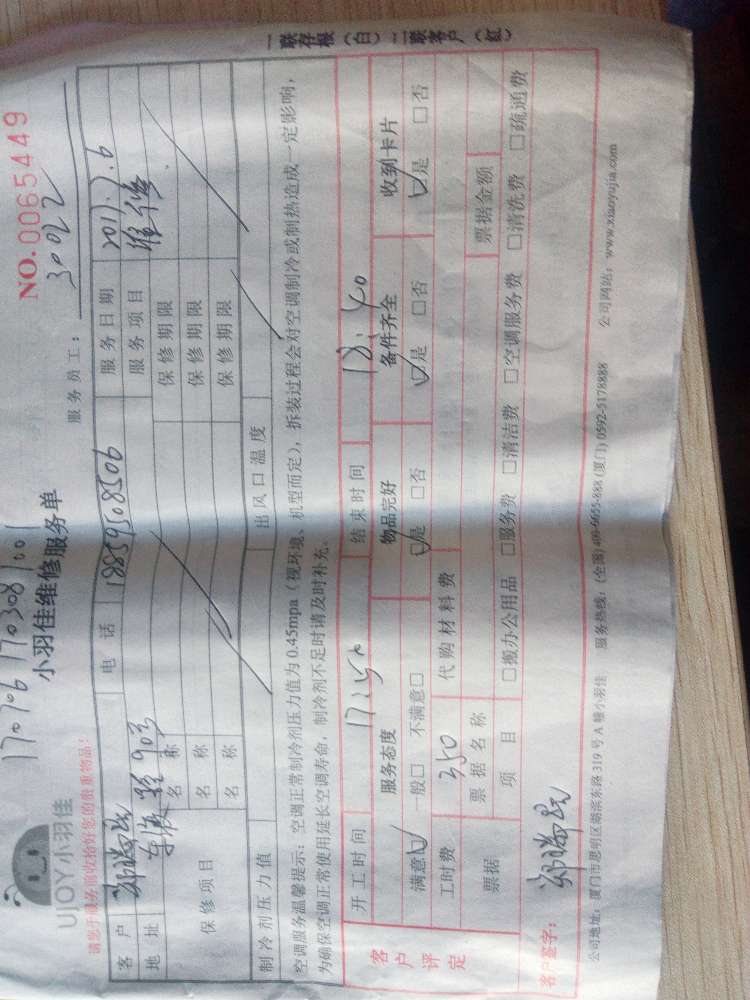 170706170308 1001
UJOY小羽佳
小羽佳维修服务单
NO. 0065449
请您于服务前收拾好您的贵重物品!
服务员工: 30022
客户 电话 18859508506 服务日期 2017.7.6
地址 90号 服务项目 维修
保修项目 名称 保修期限
名称 保修期限
名称 保修期限
制冷剂压力值 出风口温度
空调服务温馨提示:空调正常制冷剂压力值为0.45mpa(视环境、机型而定),拆装过程会对空调制冷或制热造成一定影响,
为确保空调正常使用延长空调寿命,制冷剂不足时请及时补充。
客户评定
开工时间 17:50 结束时间 18:40
服务态度 物品完好 备件齐全 收到卡片
满意☑ 一般□ 不满意□ ☑是 □否 ☑是 □否 ☑是 □否
工时费 350 代购材料费
票据 票据名称 票据金额
项目 □搬办公用品 □服务费 □清洁费 □空调服务费 □清洗费 □疏通费
客户签字:
公司地址:厦门市思明区湖滨东路319号A幢小羽佳 服务热线:(全国)400-6655-888 (厦门) 0592-5178888 公司网站:www.xiaoyujia.com
一联存根(白)二联客户(红)